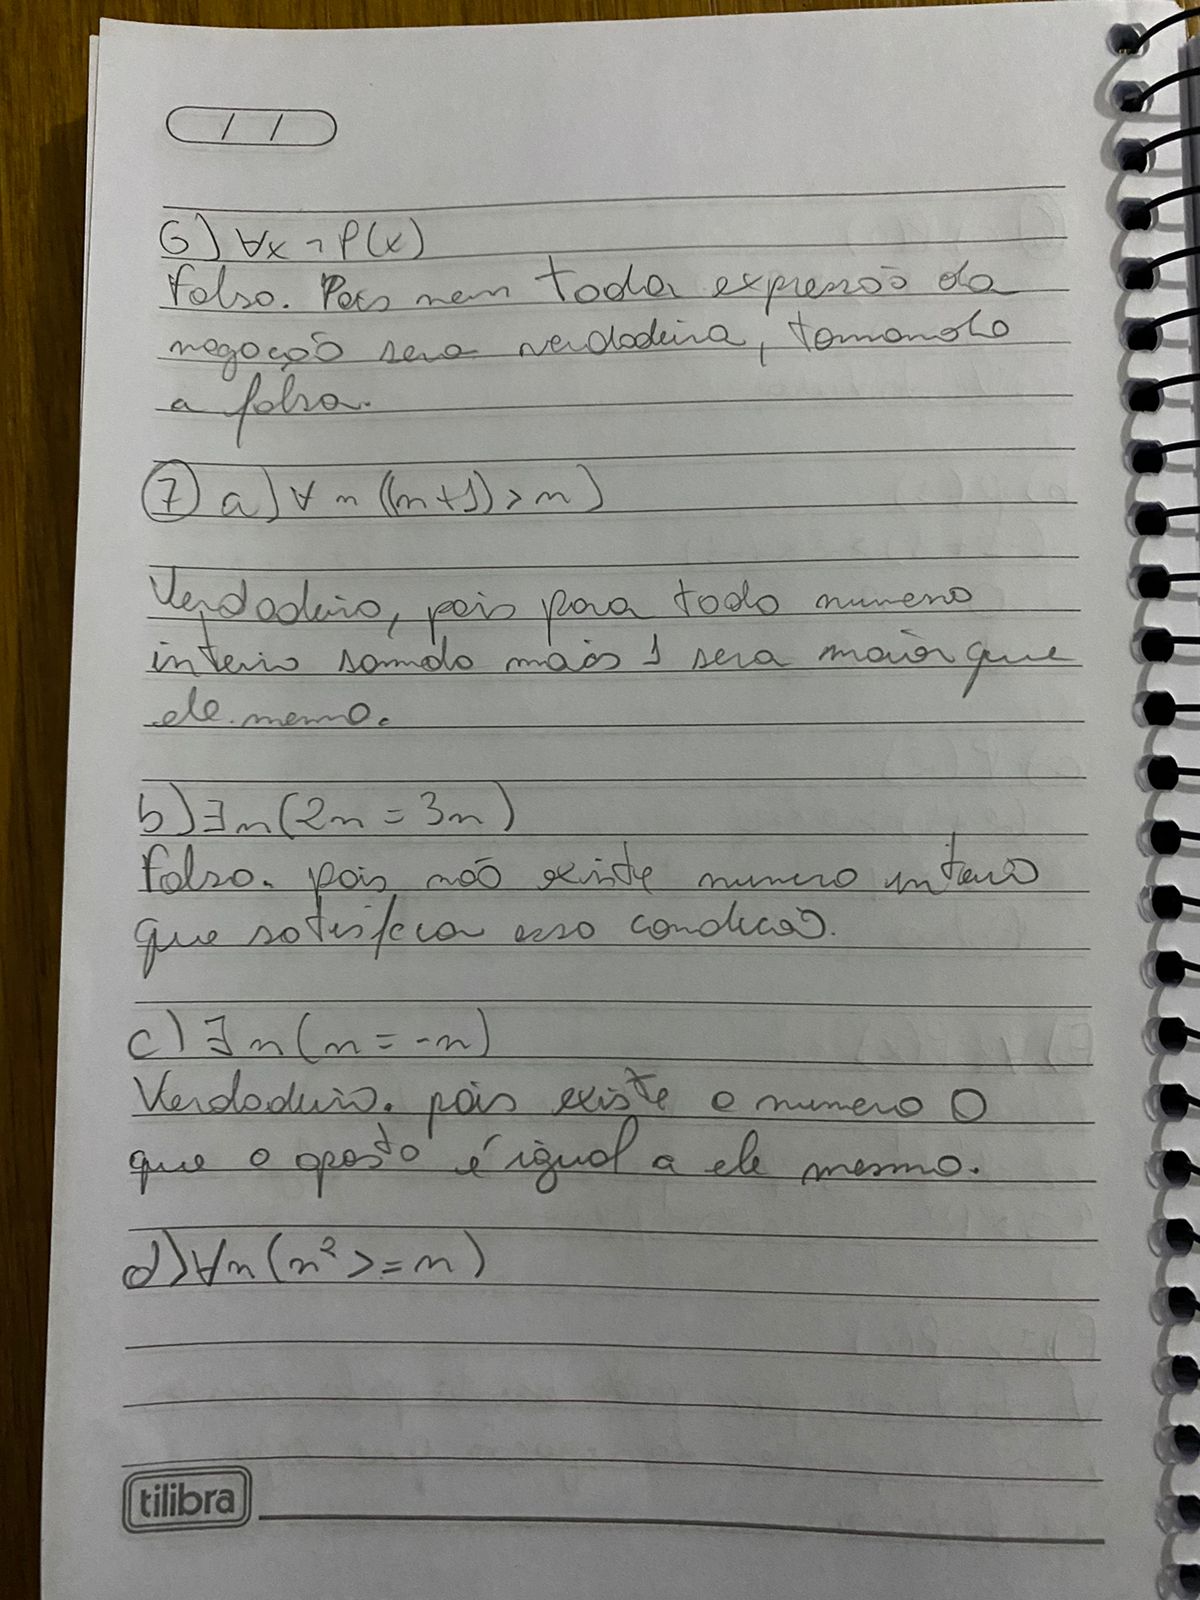 / /
G) ∀x ¬ P(x)
Falso. Pois nem toda expressão da
negação sera verdadeira, tornando
a falsa.
7) a) ∀ n ((n+1) > n)
Verdadeiro, pois para todo numero
inteiro somado mais 1 sera maior que
ele mesmo.
b) ∃n (2n = 3n)
Falso. pois não existe numero inteiro
que satisfeca essa condicão.
c) ∃ n (n = -n)
Verdadeiro. pois existe o numero 0
que o oposto é igual a ele mesmo.
d) ∀n (n² >= n)
tilibra